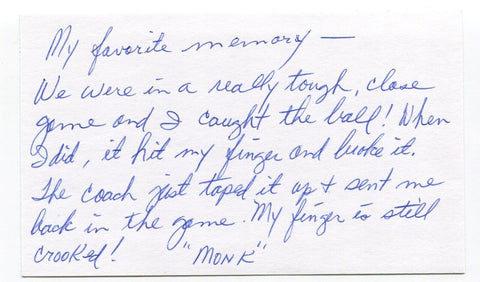 My favorite memory —
We were in a really tough, close
game and I caught the ball! When
I did, it hit my finger and broke it.
The coach just taped it up & sent me
back in the game. My finger is still
crooked! "MONK"